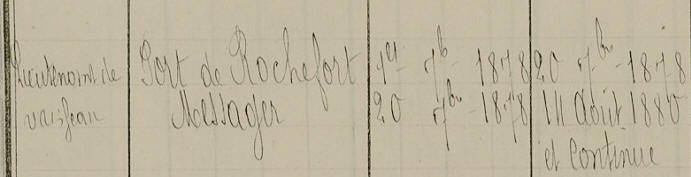 Lieutenant de Port de Rochefort 1er 7b 1878 20 7bre 1878
vaisseau Messager 20 7bre 1878 11 Août 1880
et continue